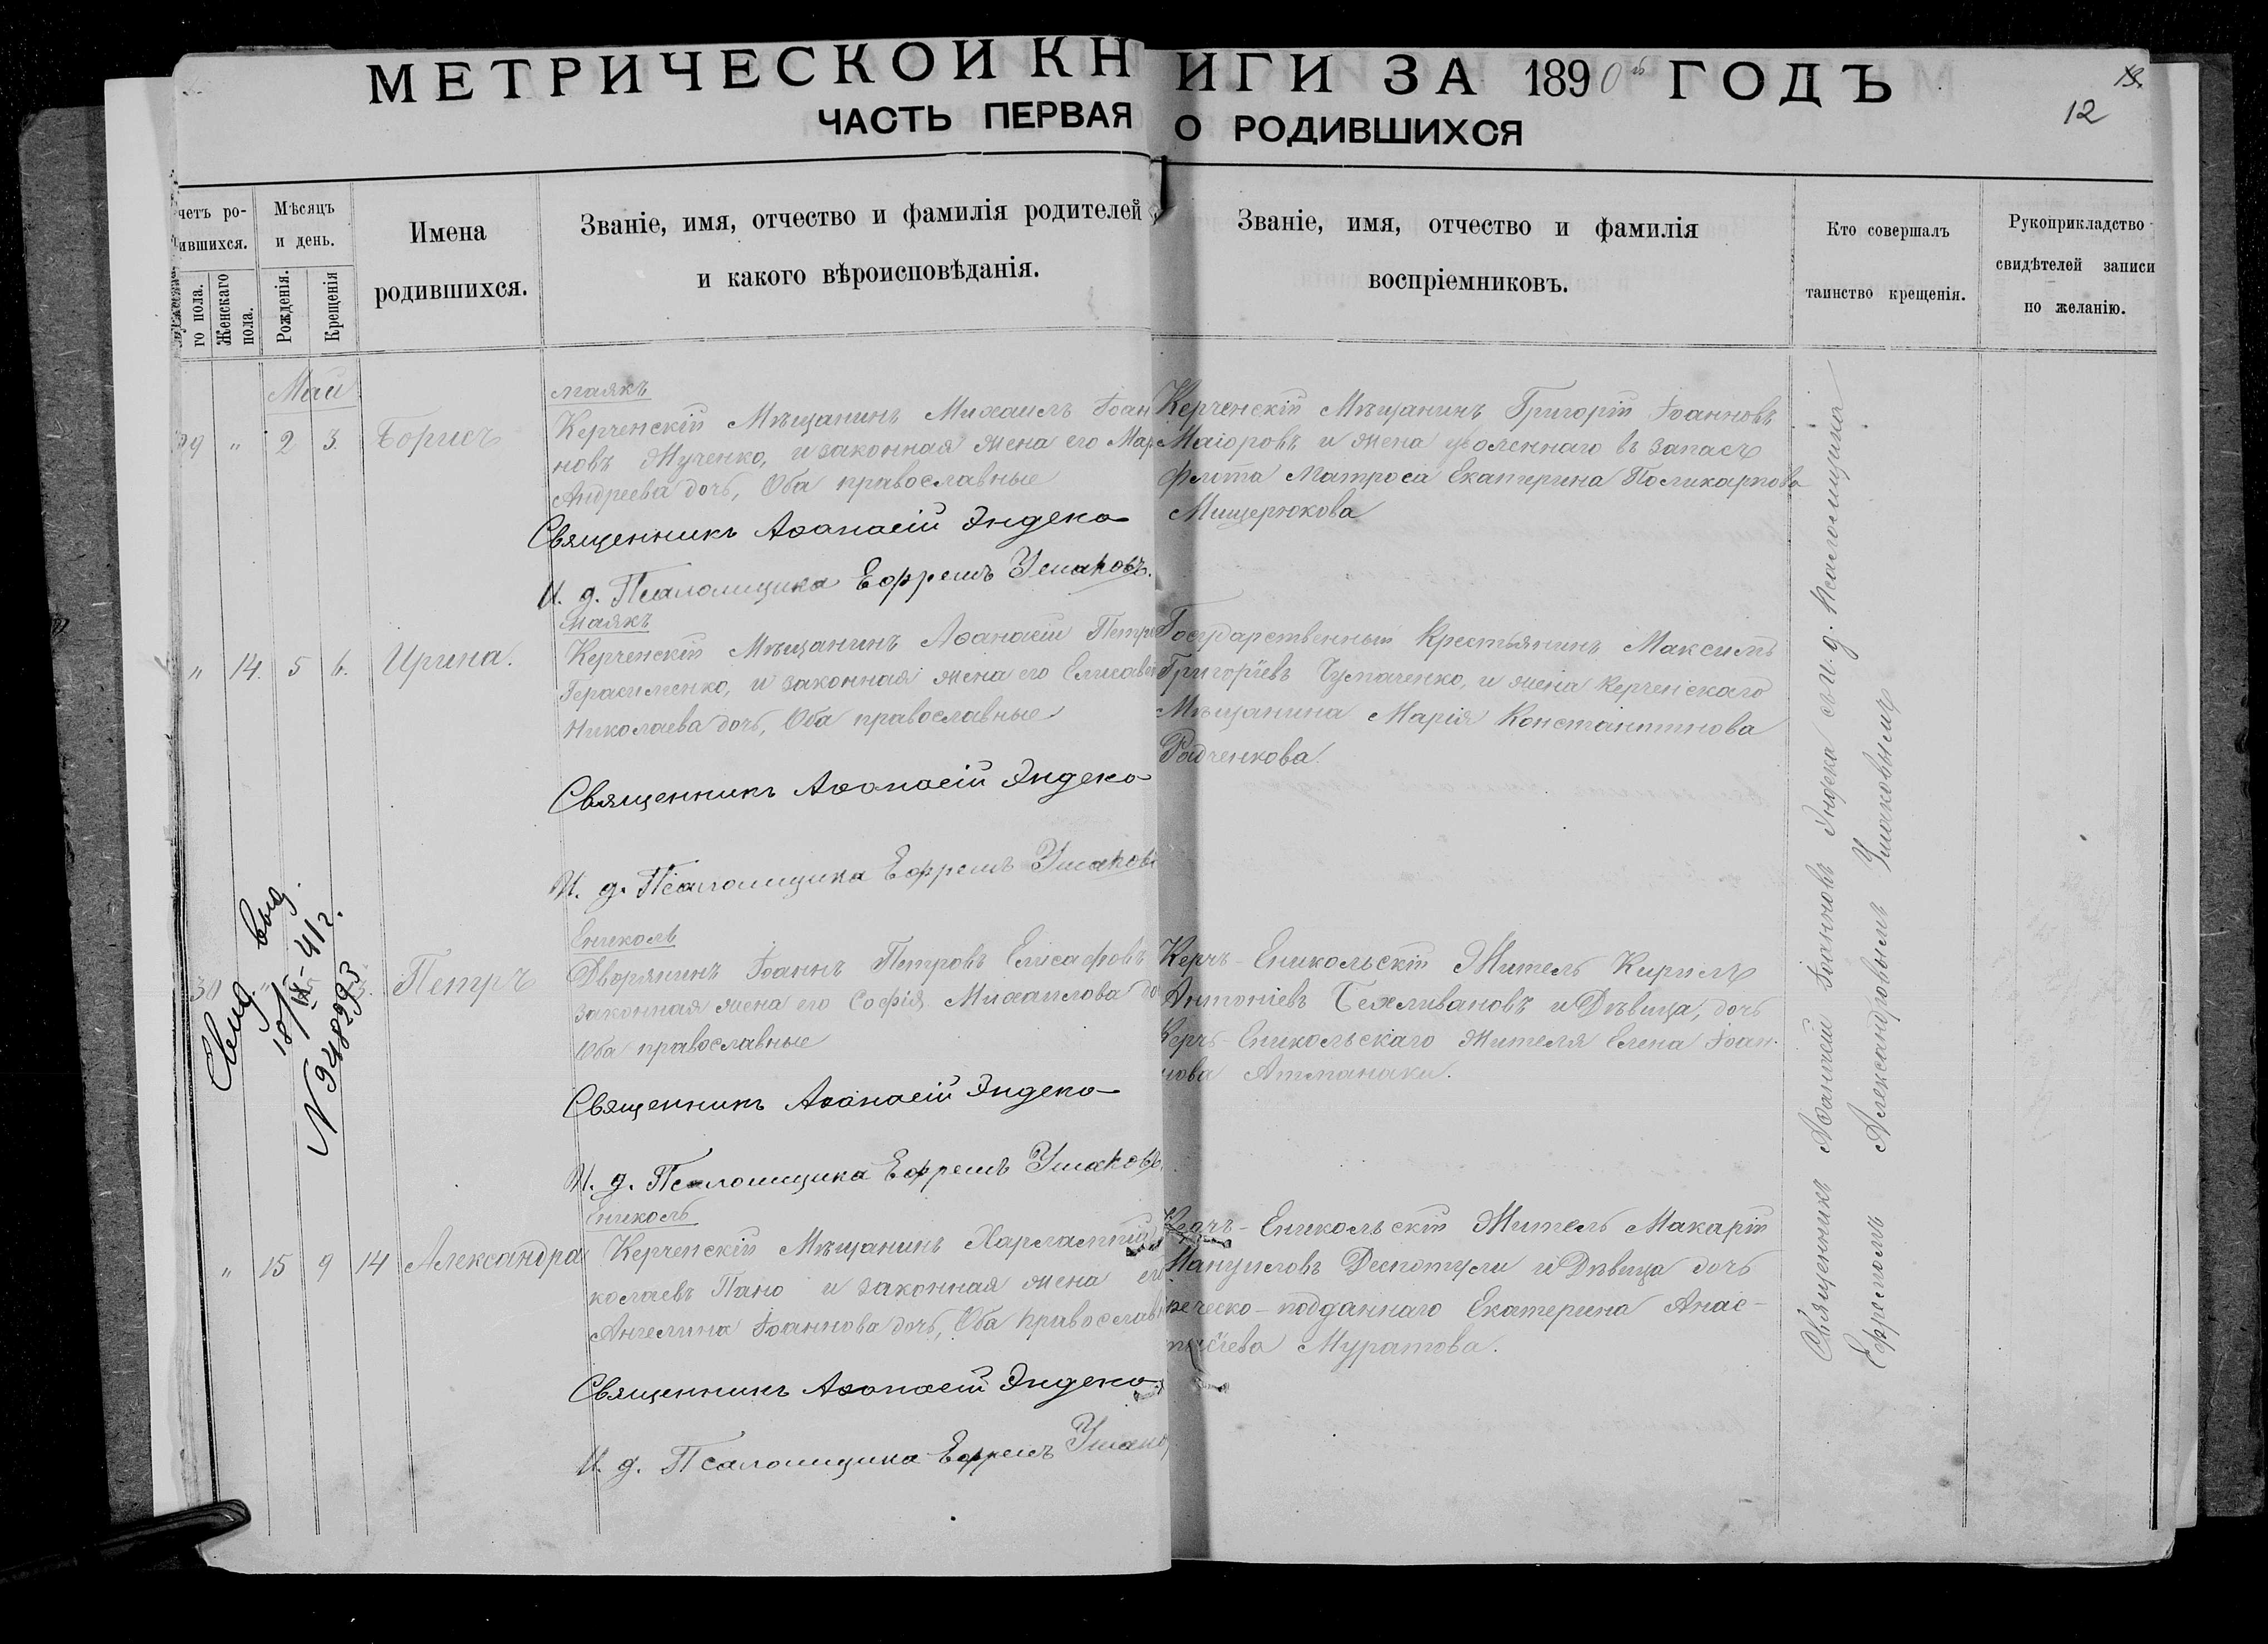 МЕТРИЧЕСКОЙ КНИГИ ЗА 1890й ГОДЪ
ЧАСТЬ ПЕРВАЯ О РОДИВШИХСЯ
12
четъ ро-
ившихся.
го пола.
Женскаго
пола.
Мѣсяцъ
и день.
Рожденія.
Крещенія
Имена
родившихся.
Званіе, имя, отчество и фамилія родителей
и какого вѣроисповѣданія.
Званіе, имя, отчество и фамилія
воспріемниковъ.
Кто совершалъ
таинство крещенія.
Рукоприкладство
свидѣтелей записи
по желанію.
Май
29 " 2 3. Борисъ
маякъ
Керченскій Мѣщанинъ Михаилъ Іоан
новъ Мученко, и законная жена его Мар
Андреева дочь, Оба православные
Священникъ Аѳанасій Эндека
И. д. Псаломщика Ефремъ Ушаковъ.
Керченскій Мѣщанинъ Григорій Іоанновъ
Маіоровъ и жена уволеннаго въ запасъ
флота Матроса Екатерина Поликарпова
Мищерюкова
" 14. 5 6. Ирина.
маякъ
Керченскій Мѣщанинъ Аѳанасій Петро
Герасименко, и законная жена его Елисавет
Николаева дочь, Оба православные
Священникъ Аѳанасій Эндека
И. д. Псаломщика Ефремъ Ушаковъ
Государственный Крестьянинъ Максимъ
Григоріевъ Чумаченко, и жена Керченскаго
Мѣщанина Марія Константинова
Радченкова.
Свид. выд.
18/IX-41г.
N 948293
30 Петръ
Ениколь
Дворянинъ Іоаннъ Петровъ Елисафовъ
законная жена его Софія Михаилова до
Оба православные
Священникъ Аѳанасій Эндека
И. д. Псаломщика Ефремъ Ушаковъ.
Керчь-Еникольскій Житель Кирилъ
Антоніевъ Бехливановъ и Дѣвица, дочь
Керчь-Еникольскаго Жителя Елена Іоан-
нова Атманаки.
" 15 9 14 Александра
Ениколь
Керченскій Мѣщанинъ Харлампій
колаевъ Пано и законная жена его
Ангелина Іоаннова дочь, Оба православн
Священникъ Аѳанасій Эндека
И. д. Псаломщика Ефремъ Ушако
Керчь-Еникольскій Житель Макарій
Мануиловъ Деспотули и Дѣвица дочь
реческо-подданнаго Екатерина Анас-
тасіева Муратова.
Священникъ Аѳанасій Іоанновъ Эндека съ И. д. Псаломщика
Ефремомъ Александровымъ Ушаковымъ